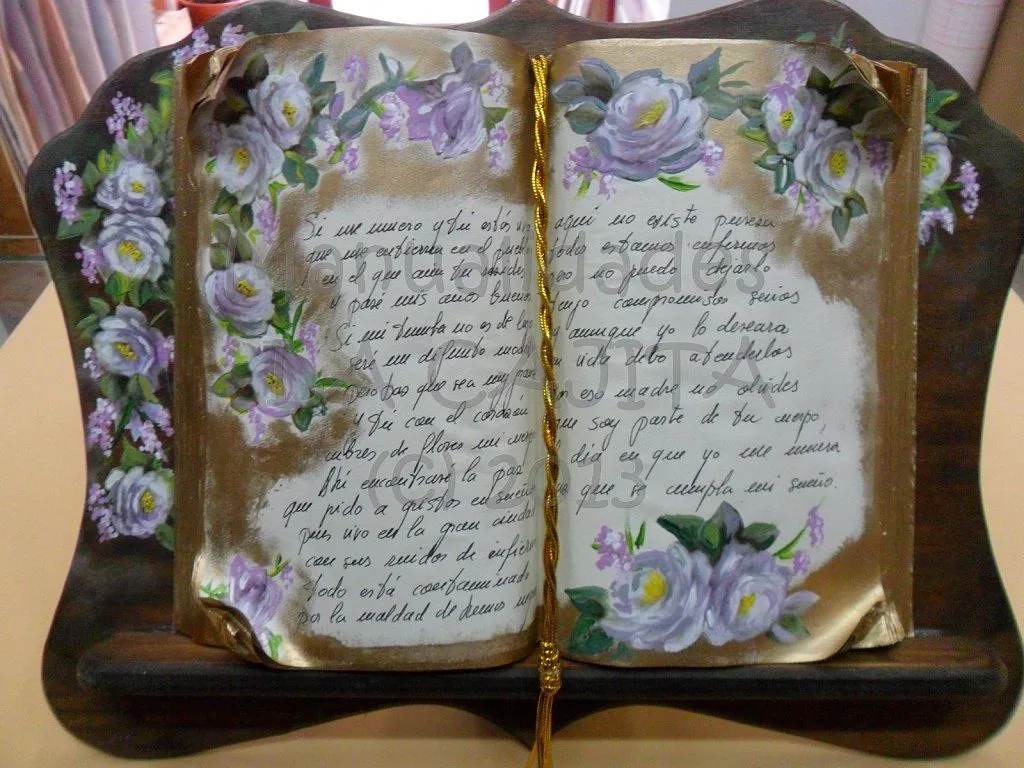 Si me muero y tú estás
que me entierren en el pueblo
en el que aun tu resides
y pasé mis años buenos
Si mi tumba no es de lujo
seré un difunto modesto
pero haz que sea muy
y tú con el corazón
cubres de flores mi
Ahí encontraré la paz
que pido a gritos en sueños
pues vivo en la gran ciudad
con sus ruidos de infierno
todo está contaminado
por la maldad de
aquí no existe pureza
todos estamos enfermos
pero no puedo dejarlo
tengo compromisos serios
y aunque yo lo deseara
en vida debo atenderlos
eso madre no olvides
que soy parte de tu cuerpo,
el día en que yo me muera
que se cumpla mi sueño.
Manualidades
LA CAJITA
(C) 2013